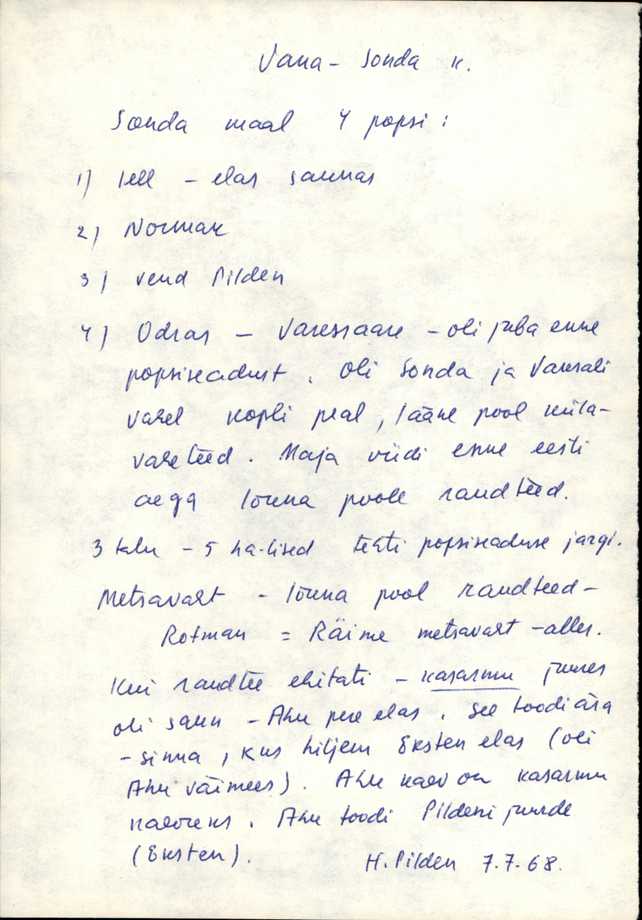 Vana-Sonda k.
Sonda maal 4 popsi:
1) Lell - elas saunas
2) Normak
3) vend Pilden
4) Odras - Varessaare - oli juba enne
popsiseadust. Oli Sonda ja Vainsali
vahel kopli peal, lääne pool küla-
vaheteed. Maja viidi enne eesti
aega lõuna poole raudteed.
3 talu - 5 ha-lised tehti popsiseaduse järgi.
Metsavaht - lõuna pool raudteed -
Rotman = Räime metsavaht - alles.
Kui raudtee ehitati - kasarmu juures
oli saun - Ahu pere elas. See toodi ära
- sinna, kus hiljem Eksten elas (oli
Ahu väimees). Ahu kaev on kasarmu
kaevuks. Ahu toodi Pildeni juurde
(Eksten).
H. Pilden 7.7.68.